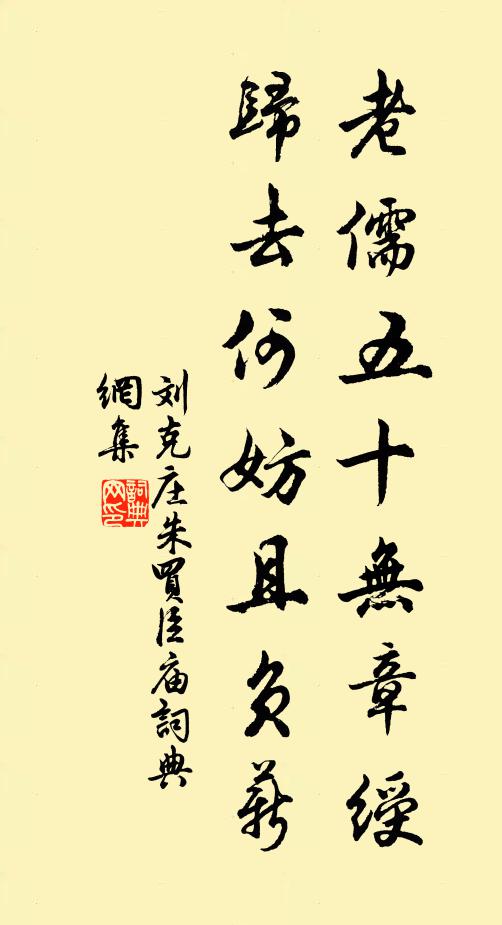 老儒五十無章綬
歸去何妨且负薪
刘克庄朱買臣庙詞典
網集
詞典网印